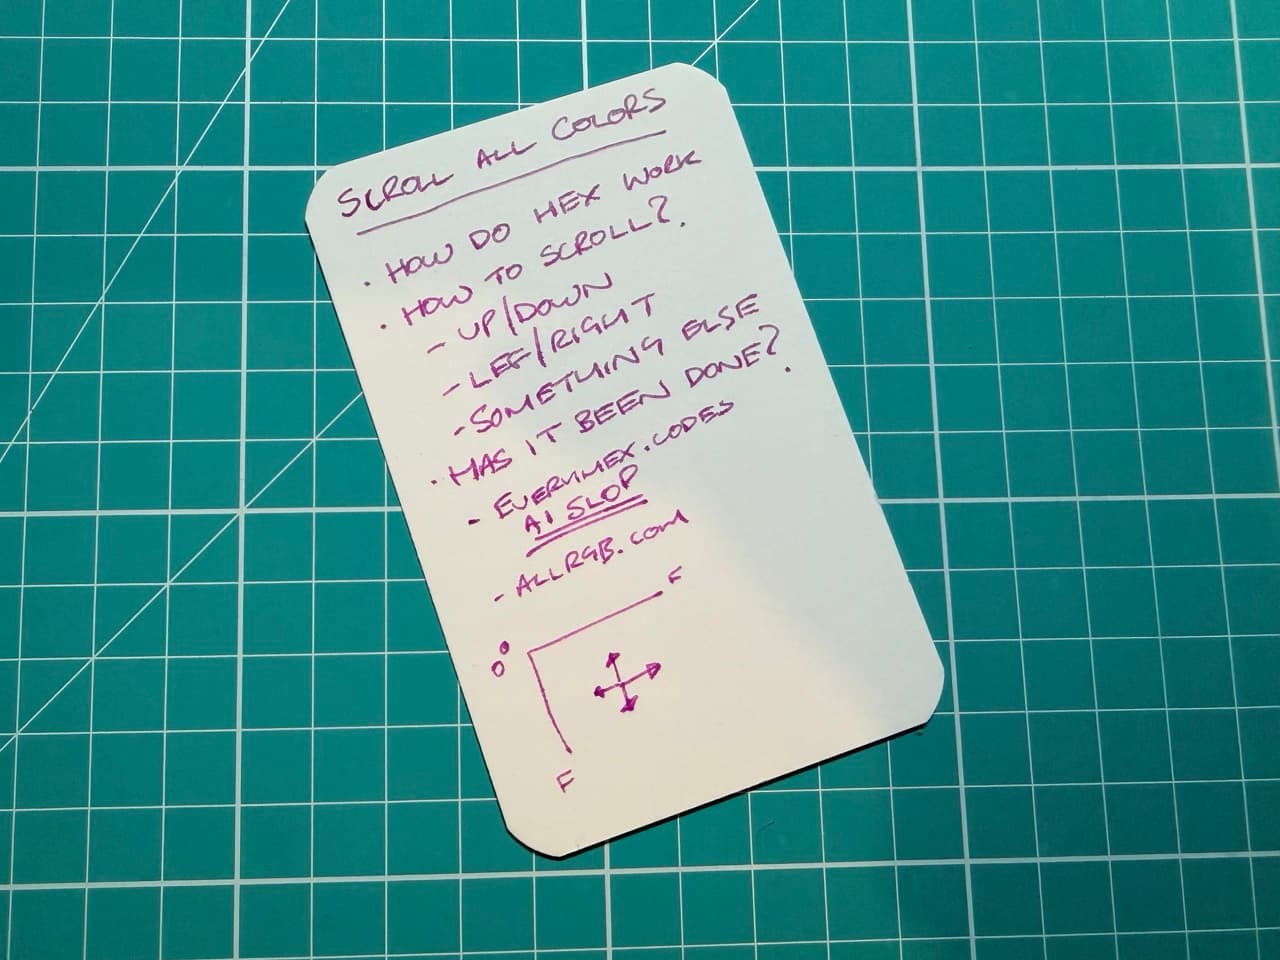 SCROLL ALL COLORS
· HOW DO HEX WORK
· HOW TO SCROLL?
- UP/DOWN
- LEF/RIGHT
- SOMETHING ELSE
· HAS IT BEEN DONE?
- EVERYHEX.CODES
AI SLOP
- ALLRGB.COM
F
0 0
F